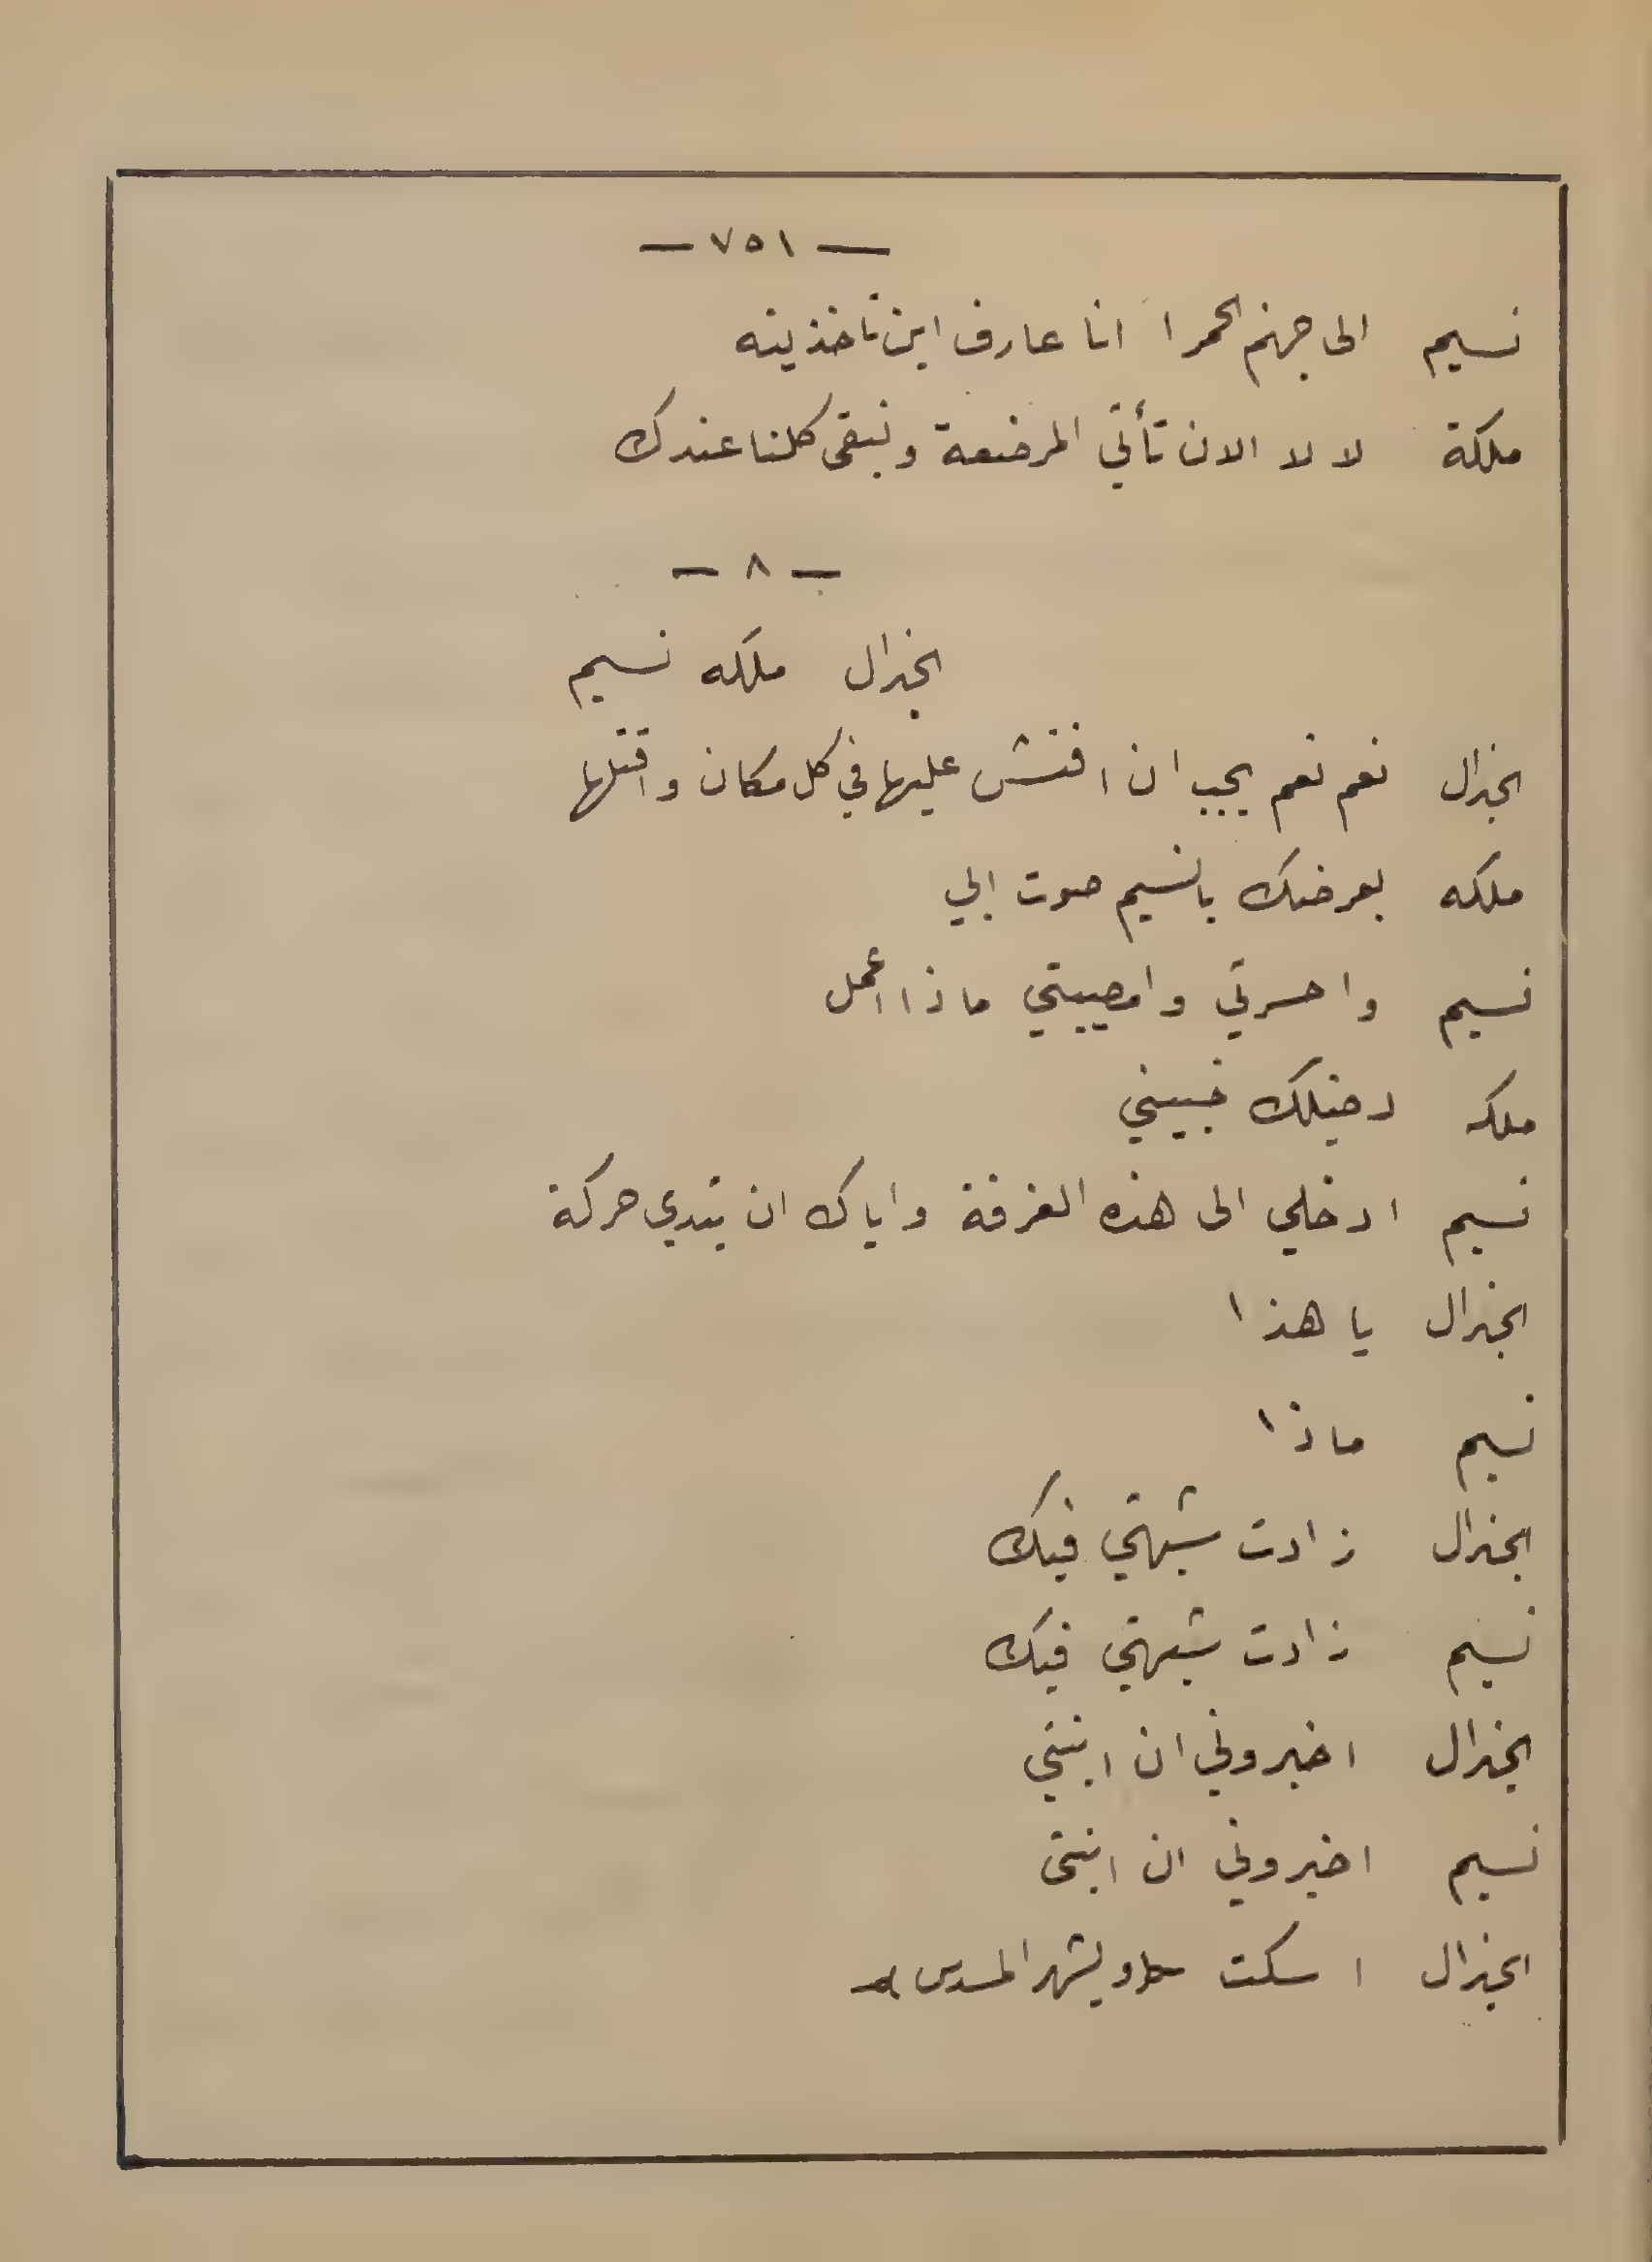 — ٧٥١ —
نسيم الى جهنم الحمرا انا عارف اين تاخذينه
ملكة لا لا الان تأتي المرضعة ونبقى كلنا عندك
— ٨ —
الجنرال ملكه نسيم
الجنرال نعم نعم يجب ان افتش عليها في كل مكان واقتلها
ملكه بعرضك يانسيم صوت ابي
نسيم واحسرتي وامصيبتي ماذا اعمل
ملكه دخيلك خبييني
نسيم ادخلي الى هذه الغرفة واياك ان تبدي حركة
الجنرال يا هذا
نسيم ماذا
الجنرال زادت شبهتي فيك
نسيم زادت شبهتي فيك
الجنرال اخبروني ان ابنتي
نسيم اخبروني ان ابنتى
الجنرال اسكت ويشهر المسدس